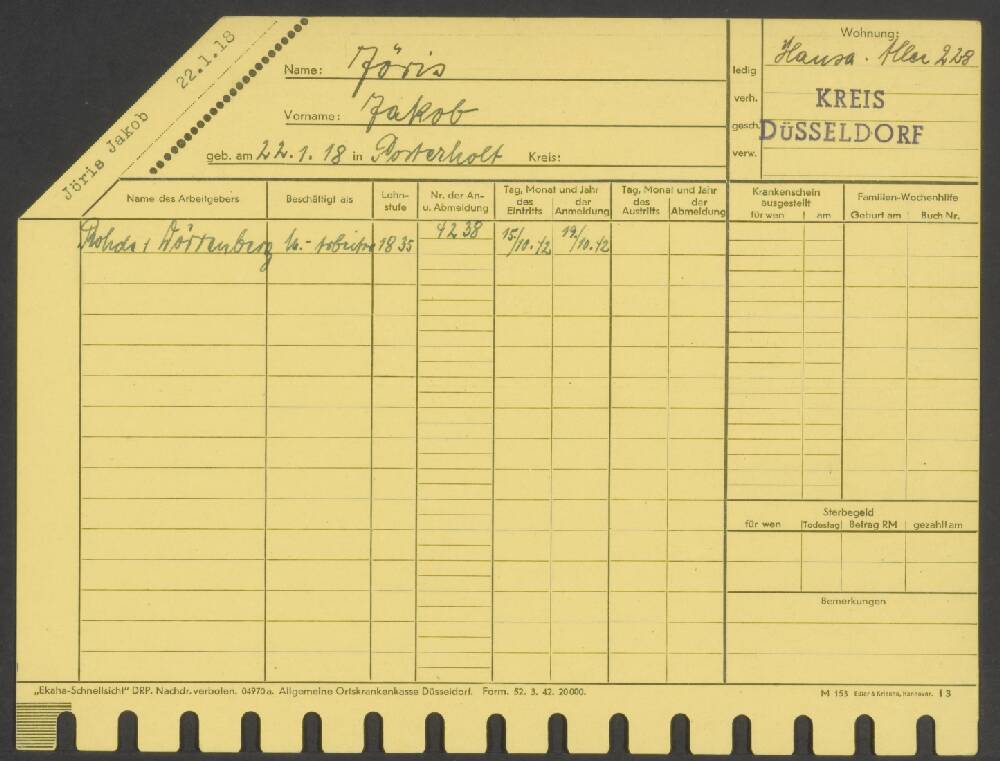 Jöris Jakob 22.1.18
Name: Jöris
Vorname: Jakob
geb. am 22.1.18 in Posterholt Kreis:
ledig
verh.
gesch.
verw.
Wohnung:
Hansa-Allee 228
KREIS
DÜSSELDORF
Name des Arbeitgebers
Beschäftigt als
Lohn-
stufe
Nr. der An-
u. Abmeldung
Tag, Monat und Jahr
des Eintritts
der Anmeldung
Tag, Monat und Jahr
des Austritts
der Abmeldung
Krankenschein
ausgestellt
für wen am
Familien-Wochenhilfe
Geburt am Buch Nr.
Rohde & Dörrenberg 1835 4238 15/10.42 19/10.42
Sterbegeld
für wen Todestag Betrag RM gezahlt am
Bemerkungen
„Ekaha-Schnellsicht" DRP. Nachdr. verboten. 04970a. Allgemeine Ortskrankenkasse Düsseldorf. Form. 52. 3. 42. 20000.
M 153 Edler & Krische, Hannover. I 3